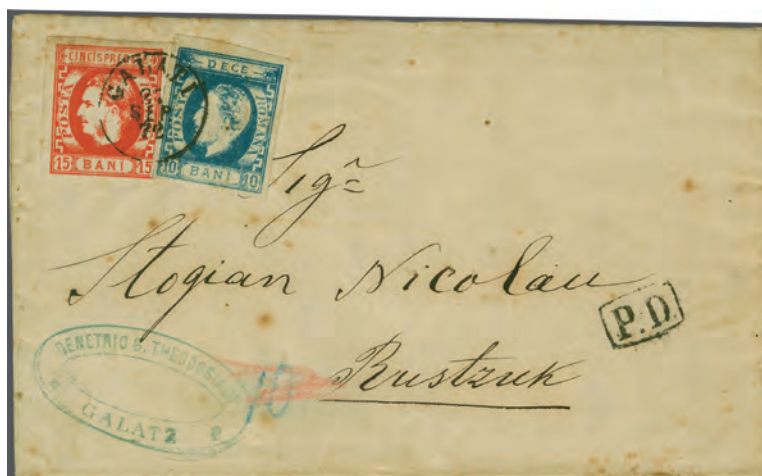 CINCISPREDECE
POSTA
15 BANI 15
DECE
POSTA
ROMANA
10 BANI 10
GALATI
SEP
72
Sigra
Stogian Nicolau
Rustzuk
P.D.
DEMETRIO G. THEODOSIADI
GALATZ
10